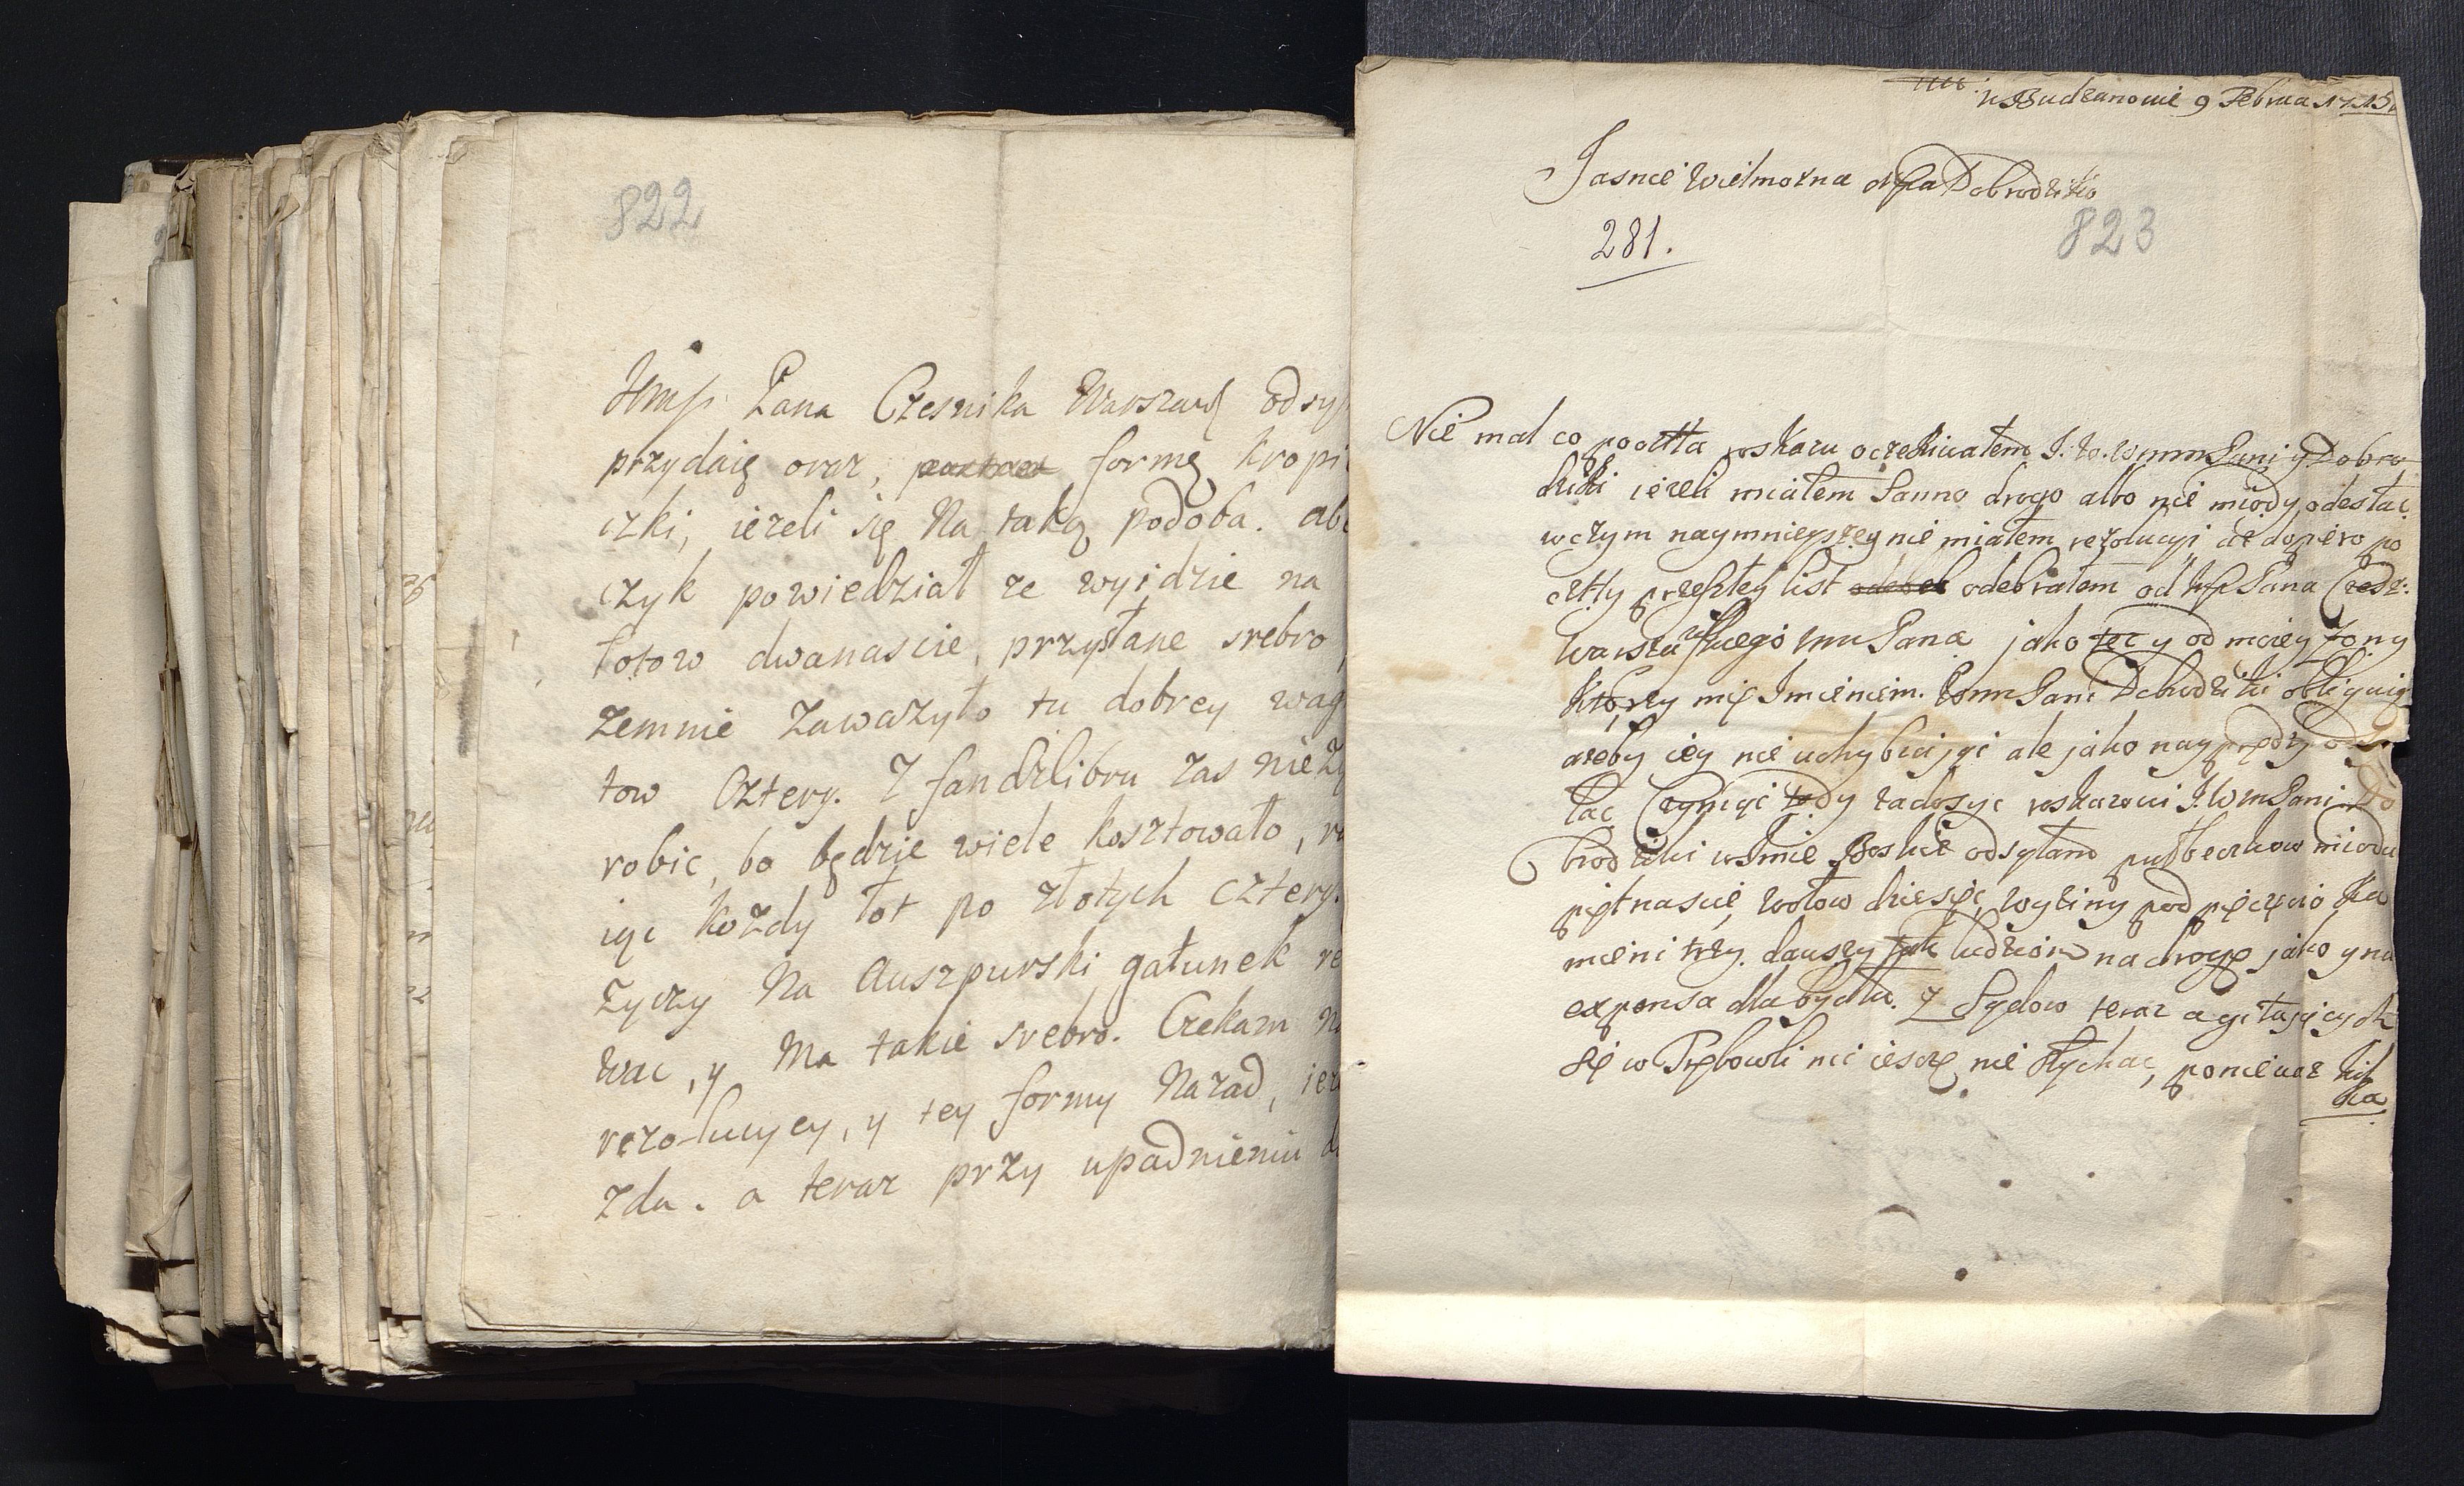 822
Jmsp. Pana Czesnika Warszaws odsy
przydaię oraz, formę kropi
czki, iezeli się Na taką podoba. ab
czyk powiedział ze wyidzie na
łotow dwanascie, przysłane srebro
zemnie Zawazyło tu dobrey wag
tow Cztery. Z fandzlibru zas nie
robic, bo będzie wiele kosztowało,
iąc kozdy łot po złotych cztery.
Zyczy Na Auszpurski gatunek
wac, y Ma takie srebro. Czekam
rezolucycy, y tey formy Nazad,
zda. a teraz przy upadnieniu
w Budzanowie 9 Februa 1715
Jasnie Wielmozna Mpa Dobrodziko
281.
823
Nie mal co poczta wskazu oczekiwałem J. W. WmmPani y Dobro
dziki iezeli miałem Panno drogo albo nie miody odesłac
w czym naymnieyszey nie miałem rezolucyi az dopiero po
czty przeszłey list odebrałem od Jmp Pana Czesz:
Warszawskiego mm Pana jako tez y od moiey zony
Ktorzy mię Imieniem. WmmPani Dobrodziki obliguią
azeby iey nie uchybiaiąc ale jako nayprędzy
łac Czyniąc tedy zadosyc wskazowi J. WmPani Do
brodziki w Imie Boskie odsyłam pułbeczkow miodu
piętnascie, wołow dziesięc, wyziny pod pięcią Ka
mieni trzy. dawszy ludziom na drogę jako y na
expensa dla bydła. Z Sądow teraz agitaiących
się w Trębowli nic ieszcze nie słychac, poniewaz kil
ka